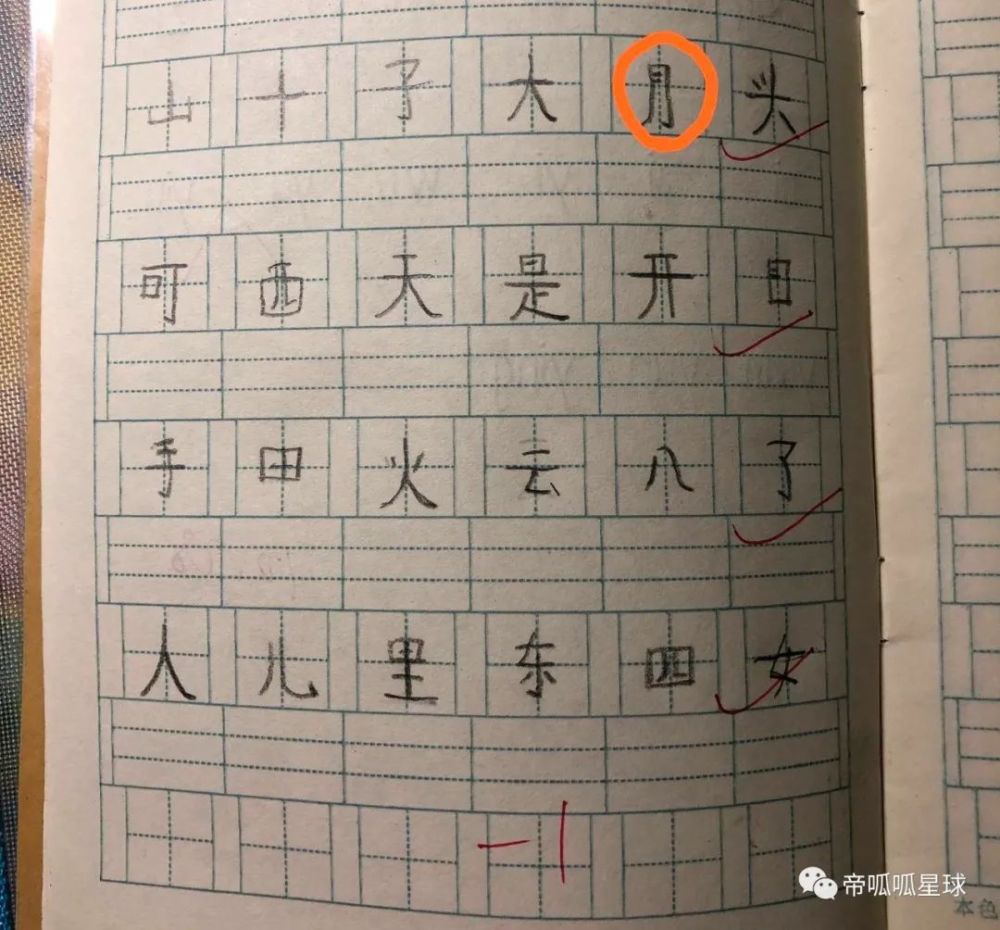 山 十 子 大 月 头
可 西 天 是 开 日
手 田 火 云 八 了
人 儿 里 东 四 女
-1
帝呱呱星球
本色